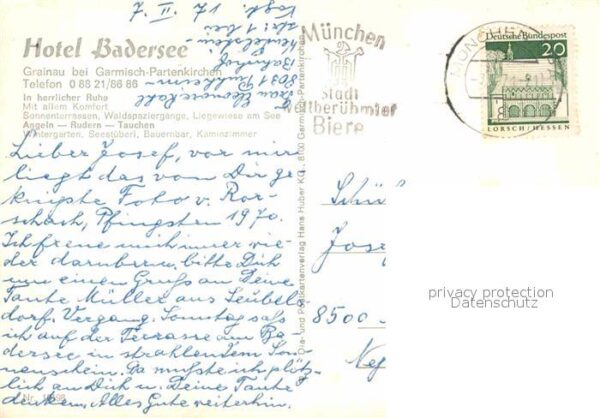 Hotel Badersee
Grainau bei Garmisch-Partenkirchen
Telefon 0 88 21/86 86
In herrlicher Ruhe
Mit allem Komfort
Sonnenterrassen, Waldspaziergänge, Liegewiese am See
Angeln — Rudern — Tauchen
Wintergarten, Seestüberl, Bauernbar, Kaminzimmer
München
Stadt
weltberühmter
Biere
MÜNCHEN
Deutsche Bundespost
20
LORSCH/HESSEN
8031 Puchheim
Bahnhof
Lieber Josef, vor mir
liegt das von Dir ge-
knipste Foto v. Ror-
schach, Pfingsten 1970.
Ich freue mich immer wie-
der darüber u. bitte Dich
um einen Gruß an Deine
Tante Müller aus Leübels-
dorf. Vergang. Sonntag saß
ich auf der Terrasse am Ba-
dersee in strahlendem Son-
nenschein. Da mußte ich plötz-
lich an Dich u. Deine Tante
denken. Alles Gute weiterhin.
Dia- und Postkartenverlag Hans Huber KG, 8100 Garmisch-Partenkirchen
Schü
Jose
8500
privacy protection
Datenschutz